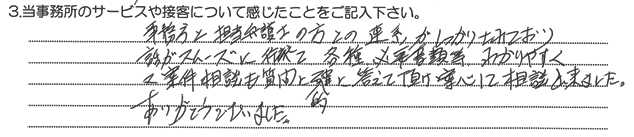 3.当事務所のサービスや接客について感じたことをご記入下さい。
事務方と担当弁護士の方との連系がしっかりされており
話がスムーズに 各種必要書類等わかりやすく
又案件相談も質問と確と答えて頂け安心して相談出来ました。
的
ありがとうございました。